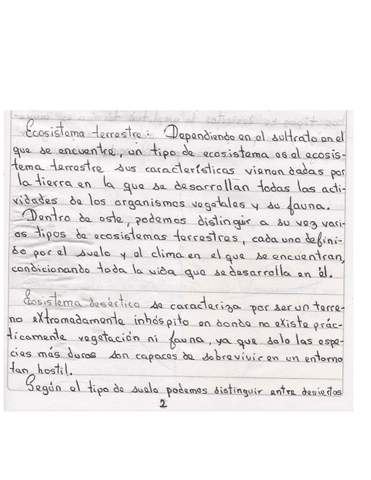 Ecosistema terrestre: Dependiendo en el sultrato en el
que se encuentre, un tipo de ecosistema es el ecosis-
tema terrestre sus características vienen dadas por
la tierra en la que se desarrollan todas las acti-
vidades de los organismos vegetales y su fauna.
Dentro de este, podemos distinguir a su vez vari-
os tipos de ecosistemas terrestres, cada uno defini-
do por el suelo y el clima en el que se encuentran,
condicionando toda la vida que se desarrolla en él.
Ecosistema desértico se caracteriza por ser un terre-
no extremadamente inhóspito en donde no existe prác-
ticamente vegetación ni fauna, ya que solo las espe-
cies más duras son capaces de sobrevivir en un entorno
tan hostil.
Según el tipo de suelo podemos distinguir entre desiertos
2